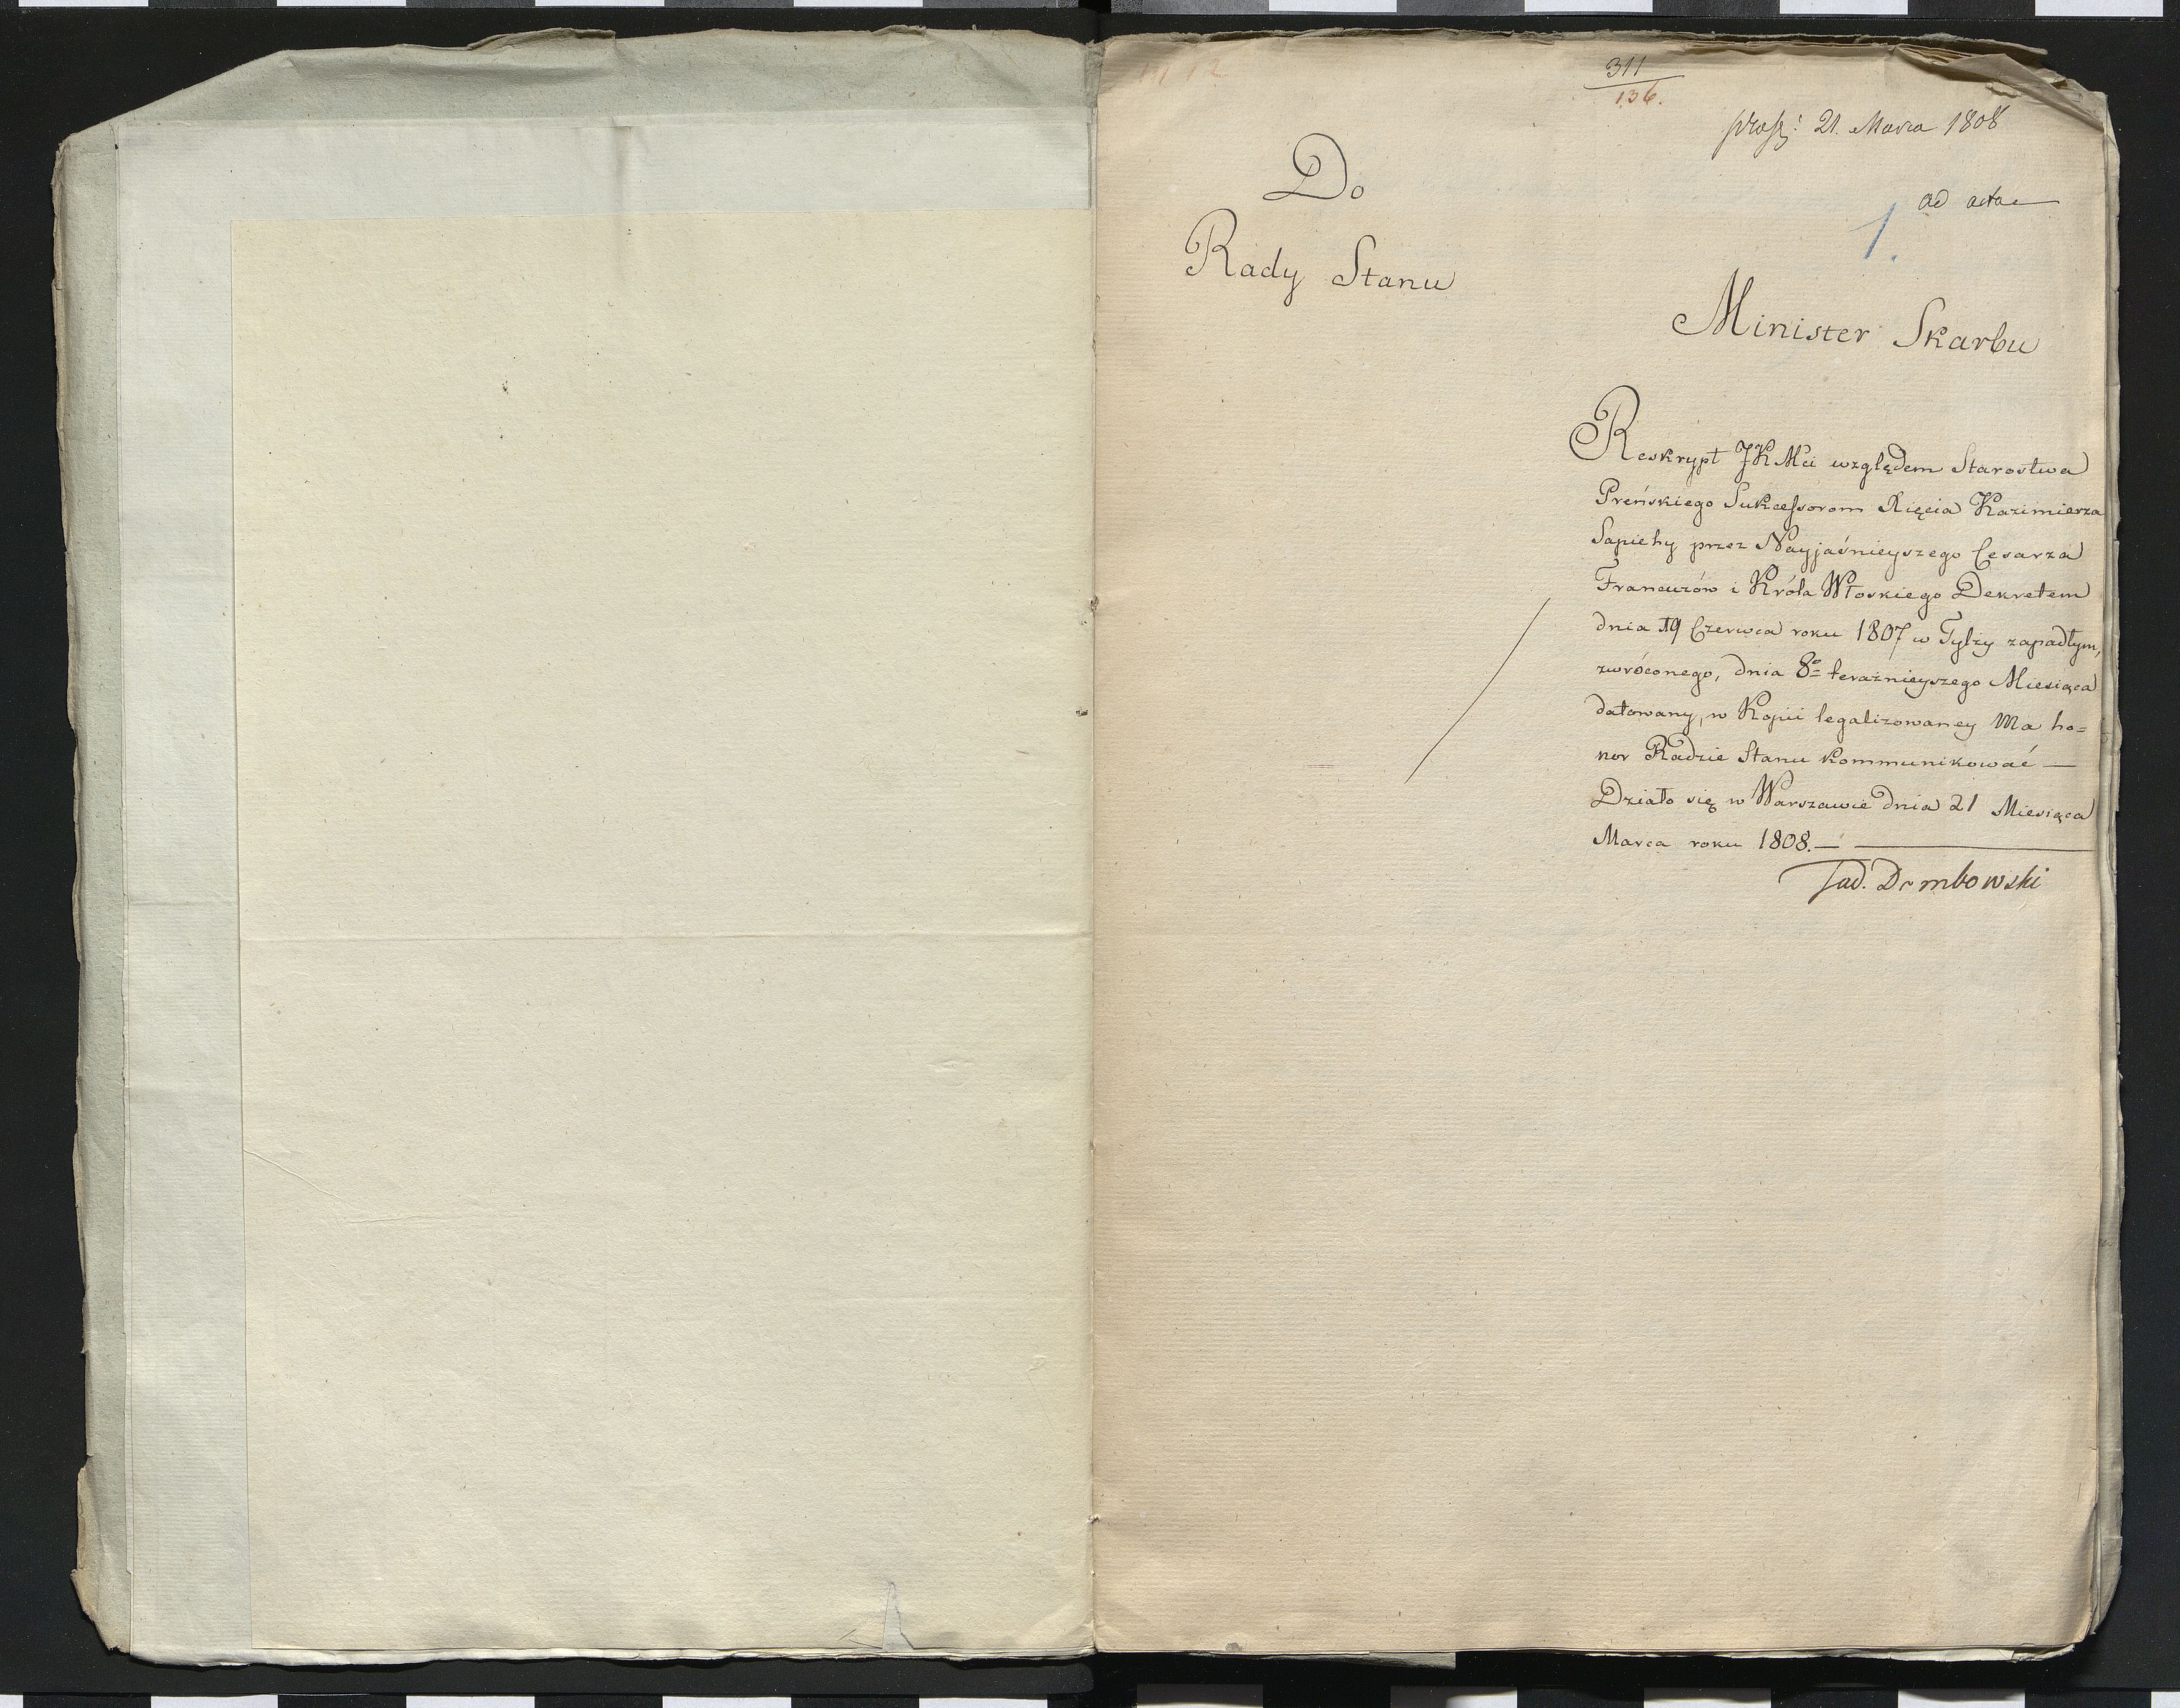 311
136.
21. Marca 1808
ad acta
1.
Do
Rady Stanu
Minister Skarbu
Reskrypt JKMci względem Starostwa
Preńskiego Sukcessorom Xięcia Kazimierza
Sapiehy przez Nayjaśnieyszego Cesarza
Francuzów i Króla Włoskiego Dekretem
dnia 19 Czerwca roku 1807 w Tylży zapadłym,
zwróconego, dnia 8º teraźnieyszego Miesiąca
datowany, w Kopii legalizowaney Ma ho=
nor Radzie Stanu kommunikować —
Działo się w Warszawie dnia 21 Miesiąca
Marca roku 1808. —
Tad. Dembowski